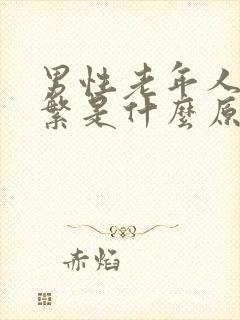 男性老年人
繁是什麼原
赤焰